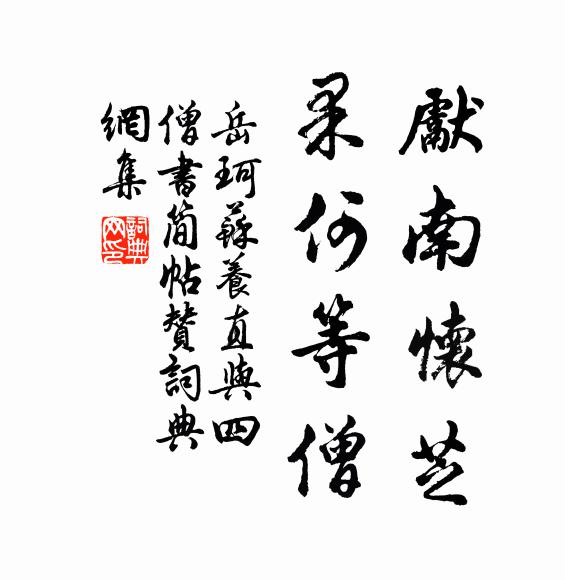 獻南懷芝
果何等僧
岳珂蘇養直與四
僧書簡帖贊詞典
網集
詞典
网印